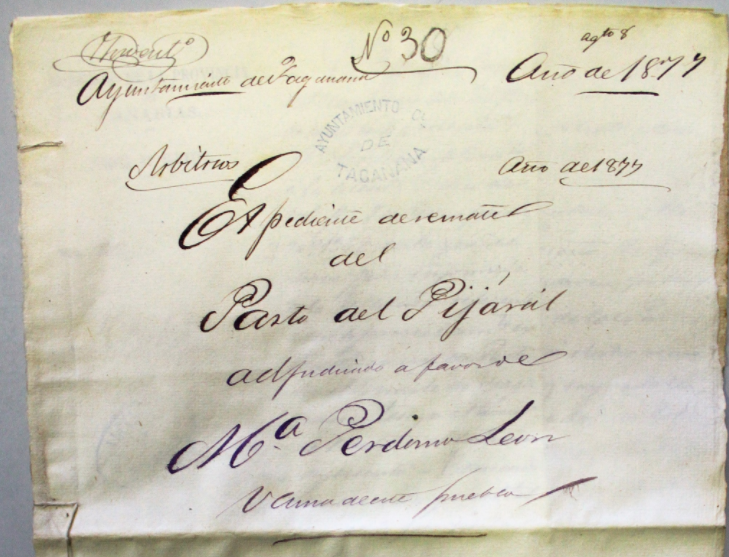 Nº 30
agto 8
Ayuntamiento de Taganana
Año de 1877
AYUNTAMIENTO
DE
TAGANANA
Arbitrios
Año de 1877
Expediente de remate
del
Pasto del Pijáral
adjudicado a favor de
Mª Perdomo Leon
Vecina de este pueblo